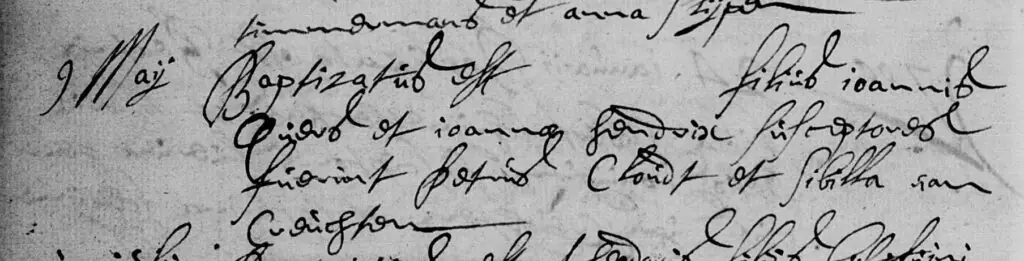 timmermans et anna
9 May Baptizatus est filius ioannis
Œuers et ioannæ hendrix susceptores
fuerunt petrus Cloudt et sibilla van
Creuchten